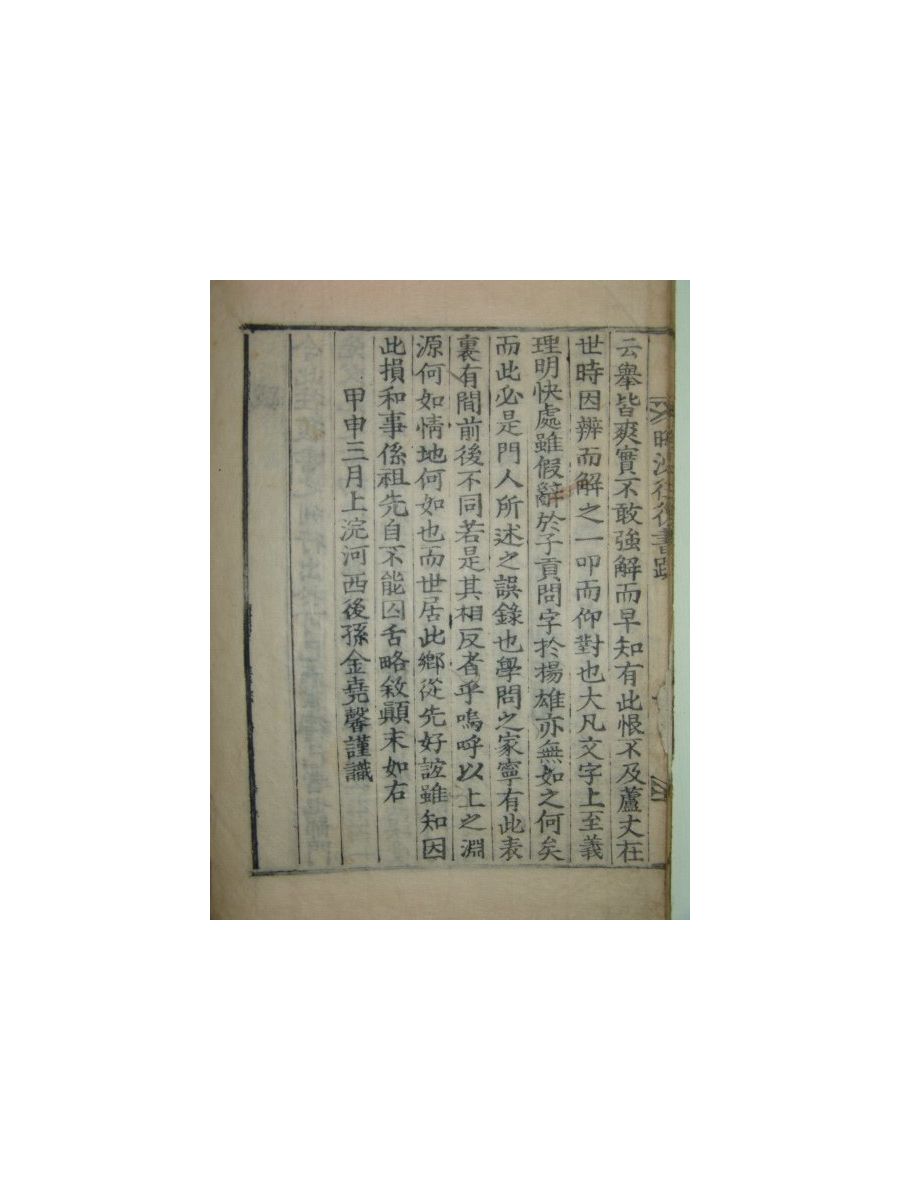 云舉皆爽實不敢強解而早知有此恨不及蘆丈在
世時因辨而解之一叩而仰對也大凡文字上至義
理明快處雖假辭於子貢問字於揚雄亦無如之何矣
而此必是門人所述之誤錄也學問之家寧有此表
裏有間前後不同若是其相反者乎嗚呼以上之淵
源何如情地何如也而世居此鄉從先好誼雖知因
此損和事係祖先自不能囚舌略敘顚末如右
甲申三月上浣河西後孫金堯馨謹識